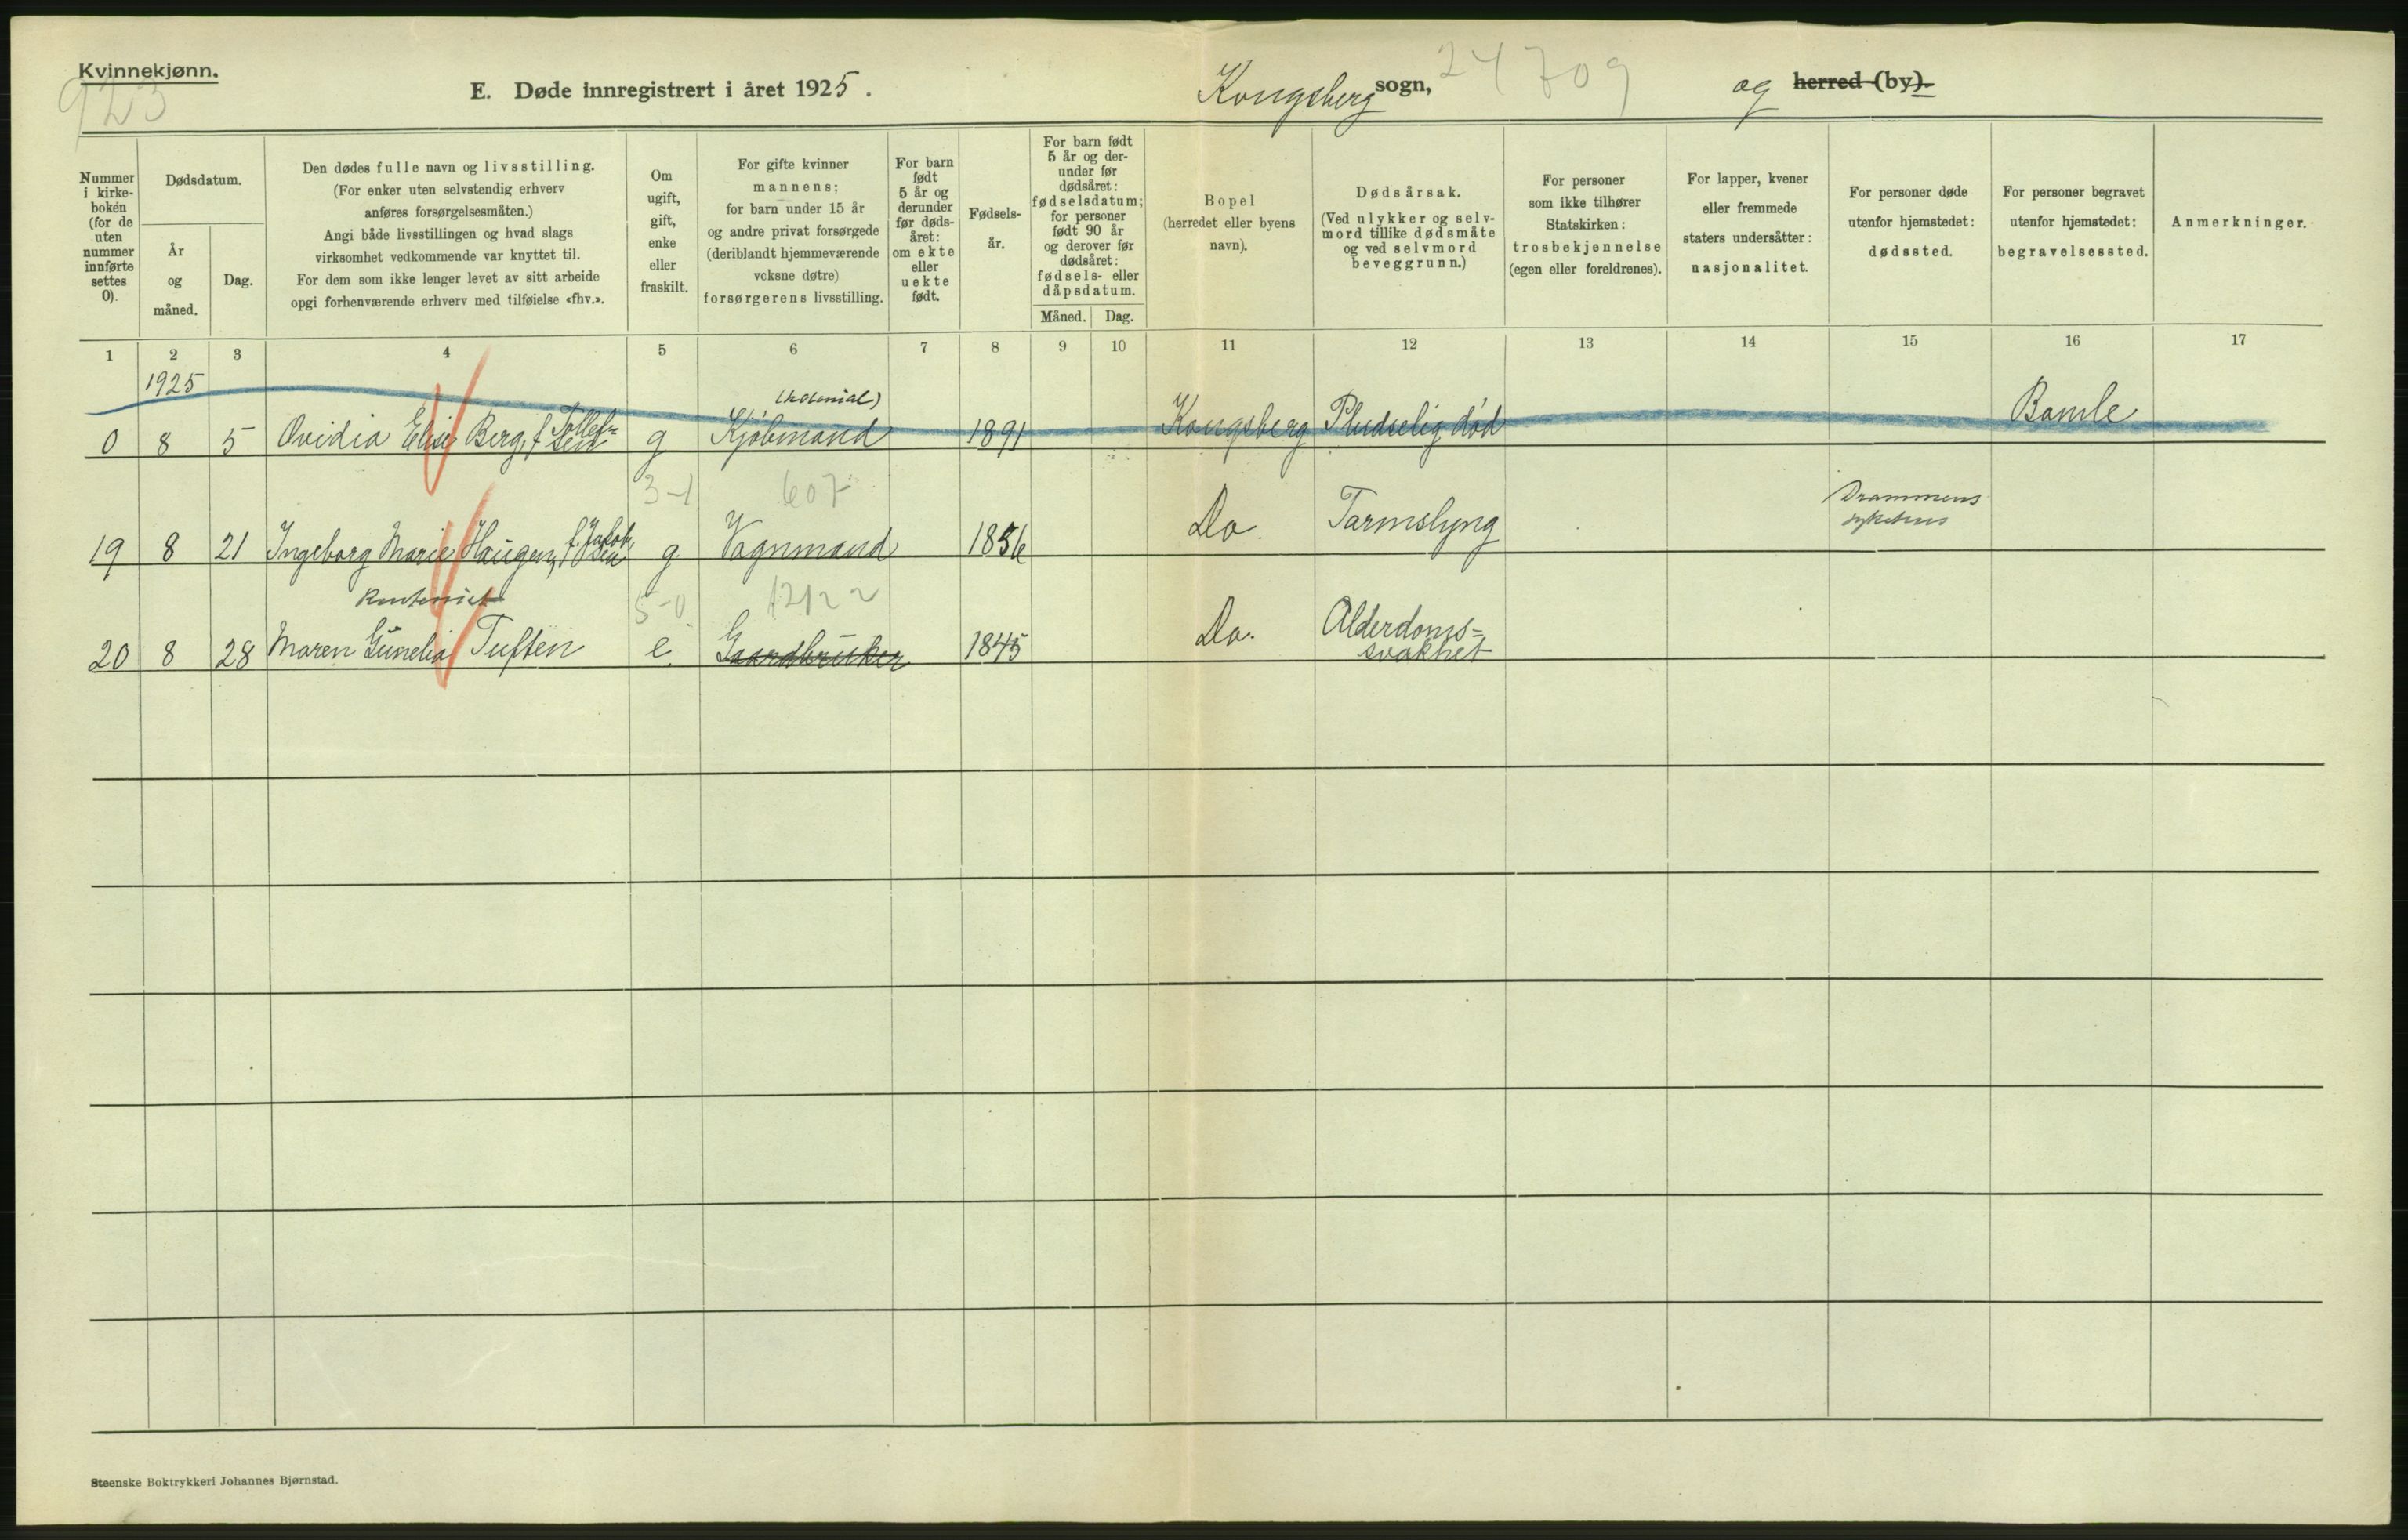 Kvinnekjønn.
923
E. Døde innregistrert i året 1925.
Kongsberg sogn, 24 709 og herred (by).
Nummer i kirkeboken (for de uten nummer innførte settes 0).
Dødsdatum.
År og måned.
Dag.
Den dødes fulle navn og livsstilling.
(For enker uten selvstendig erhverv
anføres forsørgelsesmåten.)
Angi både livsstillingen og hvad slags
virksomhet vedkommende var knyttet til.
For dem som ikke lenger levet av sitt arbeide
opgi forhenværende erhverv med tilføielse «fhv.».
Om
ugift,
gift,
enke
eller
fraskilt.
For gifte kvinner
mannens;
for barn under 15 år
og andre privat forsørgede
(deriblandt hjemmeværende
voksne døtre)
forsørgerens livsstilling.
For barn
født
5 år og
derunder
før døds-
året:
om ekte
eller
uekte
født.
Fødsels-
år.
For barn født
5 år og der-
under før
dødsåret:
fødselsdatum;
for personer
født 90 år
og derover før
dødsåret:
fødsels- eller
dåpsdatum.
Måned. Dag.
Bopel
(herredet eller byens
navn).
Dødsårsak.
(Ved ulykker og selv-
mord tillike dødsmåte
og ved selvmord
beveggrunn.)
For personer
som ikke tilhører
Statskirken:
trosbekjennelse
(egen eller foreldrenes).
For lapper, kvener
eller fremmede
staters undersåtter:
nasjonalitet.
For personer døde
utenfor hjemstedet:
dødssted.
For personer begravet
utenfor hjemstedet:
begravelsessted.
Anmerkninger.
1 2 3 4 5 6 7 8 9 10 11 12 13 14 15 16 17
1925
(kolonial)
0 8 5 Ovidia Elise Berg, f. Tollefsen g Kjøbmand 1891 Kongsberg Pludselig død Bamle
3-1 607
19 8 21 Ingeborg Marie Haugen, f. Jakobsen g. Vognmand 1856 Do. Tarmslyng Drammens sykehus
Rentenist 5-0 12122
20 8 28 Maren Gunelia Tuften e. Gaardbruker 1845 Do. Alderdoms=
svakhet
Steenske Boktrykkeri Johannes Bjørnstad.